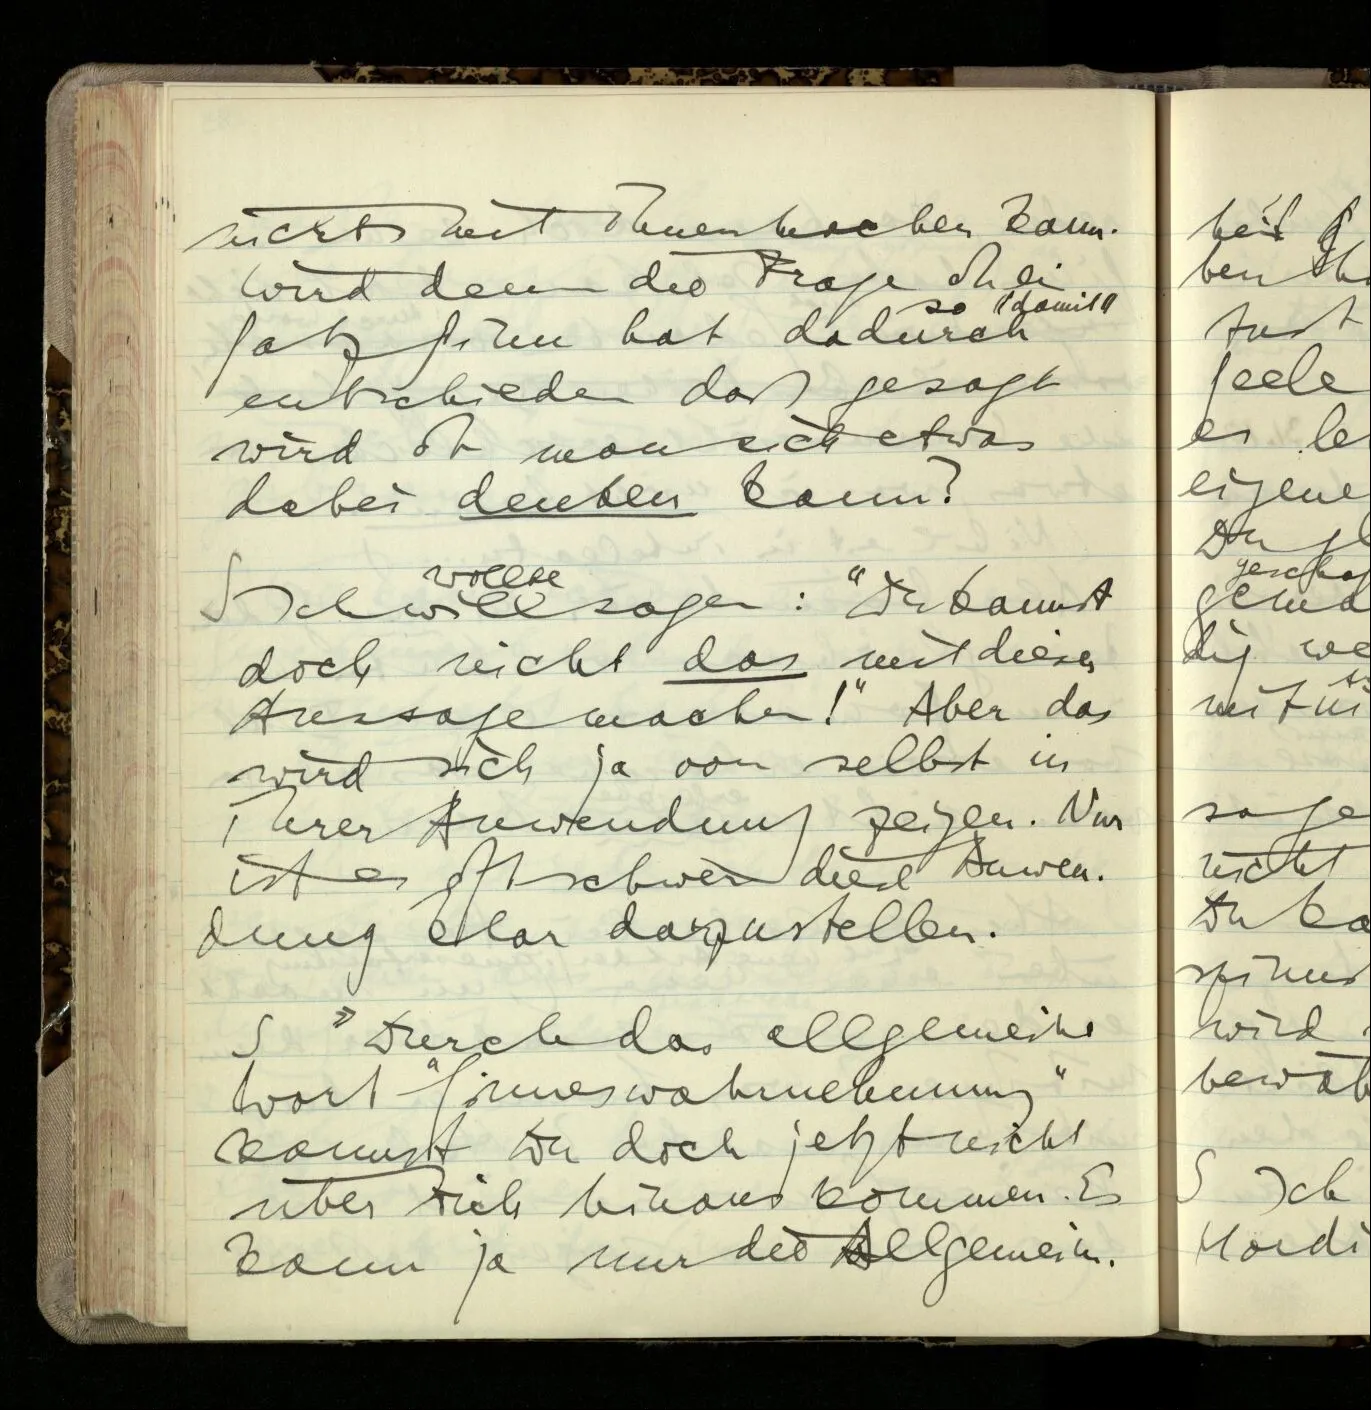 nichts mit Ihnen machen kann.
Wird denn die Frage ob ein
so "damit"
Satz Sinn hat dadurch
entschieden daß gesagt
wird ob man sich etwas
dabei denken kann?
wollte
S Ich will sagen : "Du kannst
doch nicht das mit diesen
Aussage machen!" Aber das
wird sich ja von selbst in
Ihrer Anwendung zeigen. Nur
ist es oft schwer diese Anwen-
dung klar darzustellen.
S "Durch das allgemeine
Wort "Sinneswahrnehmung"
kannst Du doch jetzt nicht
über Dich hinaus kommen. Es
kann ja nur die Allgemein-
bei
ben
tust
Seele
es
eigene
Du
mit
sage
nicht
Du
wird
S Ich